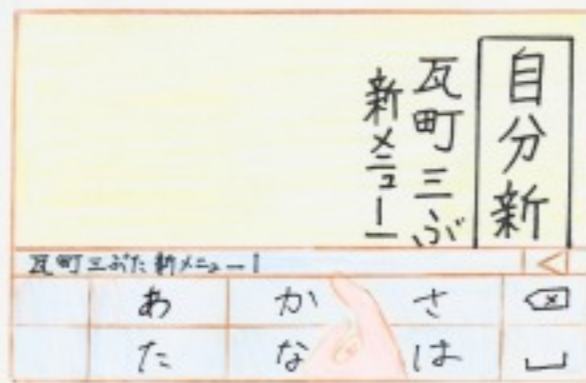 自分新
瓦町三ぶ
新メニュー
瓦町三ぶた 新メニュー
あ
か
さ
た
な
は